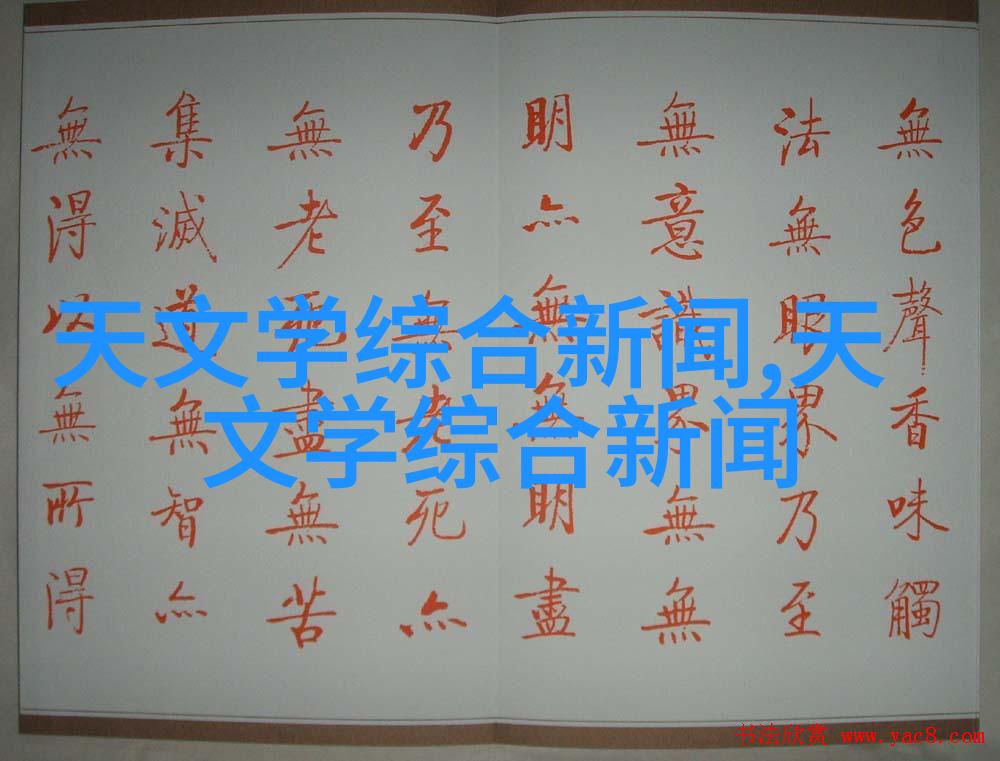 無色聲香味觸
法無眼界乃至
無意識界無無
明亦無無明盡
乃至無老死亦
無老死盡無苦
集滅道無智亦
無得以無所得
天文学综合新闻,天
文学综合新闻
书法欣赏 www.yac8.com